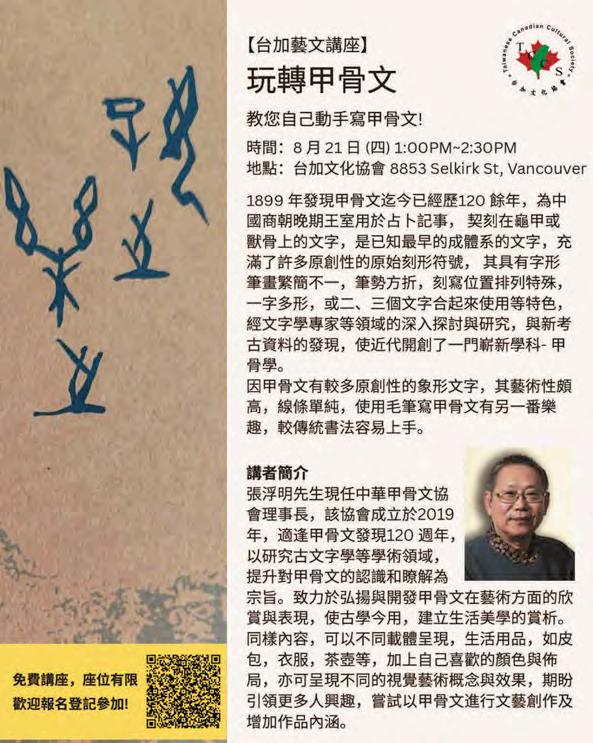 【台加藝文講座】
玩轉甲骨文
Taiwanese Canadian Cultural Society
T C C S
台加文化協會
教您自己動手寫甲骨文!
時間：8 月 21 日 (四) 1:00PM~2:30PM
地點：台加文化協會 8853 Selkirk St, Vancouver
1899 年發現甲骨文迄今已經歷120 餘年，為中
國商朝晚期王室用於占卜記事， 契刻在龜甲或
獸骨上的文字，是已知最早的成體系的文字，充
滿了許多原創性的原始刻形符號， 其具有字形
筆畫繁簡不一，筆勢方折，刻寫位置排列特殊，
一字多形，或二、三個文字合起來使用等特色，
經文字學專家等領域的深入探討與研究，與新考
古資料的發現，使近代開創了一門嶄新學科- 甲
骨學。
因甲骨文有較多原創性的象形文字，其藝術性頗
高，線條單純，使用毛筆寫甲骨文有另一番樂
趣，較傳統書法容易上手。
講者簡介
張浮明先生現任中華甲骨文協
會理事長，該協會成立於2019
年，適逢甲骨文發現120 週年，
以研究古文字學等學術領域，
提升對甲骨文的認識和瞭解為
宗旨。致力於弘揚與開發甲骨文在藝術方面的欣
賞與表現，使古學今用，建立生活美學的賞析。
同樣內容，可以不同載體呈現，生活用品，如皮
包，衣服，茶壺等，加上自己喜歡的顏色與佈
局，亦可呈現不同的視覺藝術概念與效果，期盼
引領更多人興趣，嘗試以甲骨文進行文藝創作及
增加作品內涵。
免費講座，座位有限
歡迎報名登記參加!